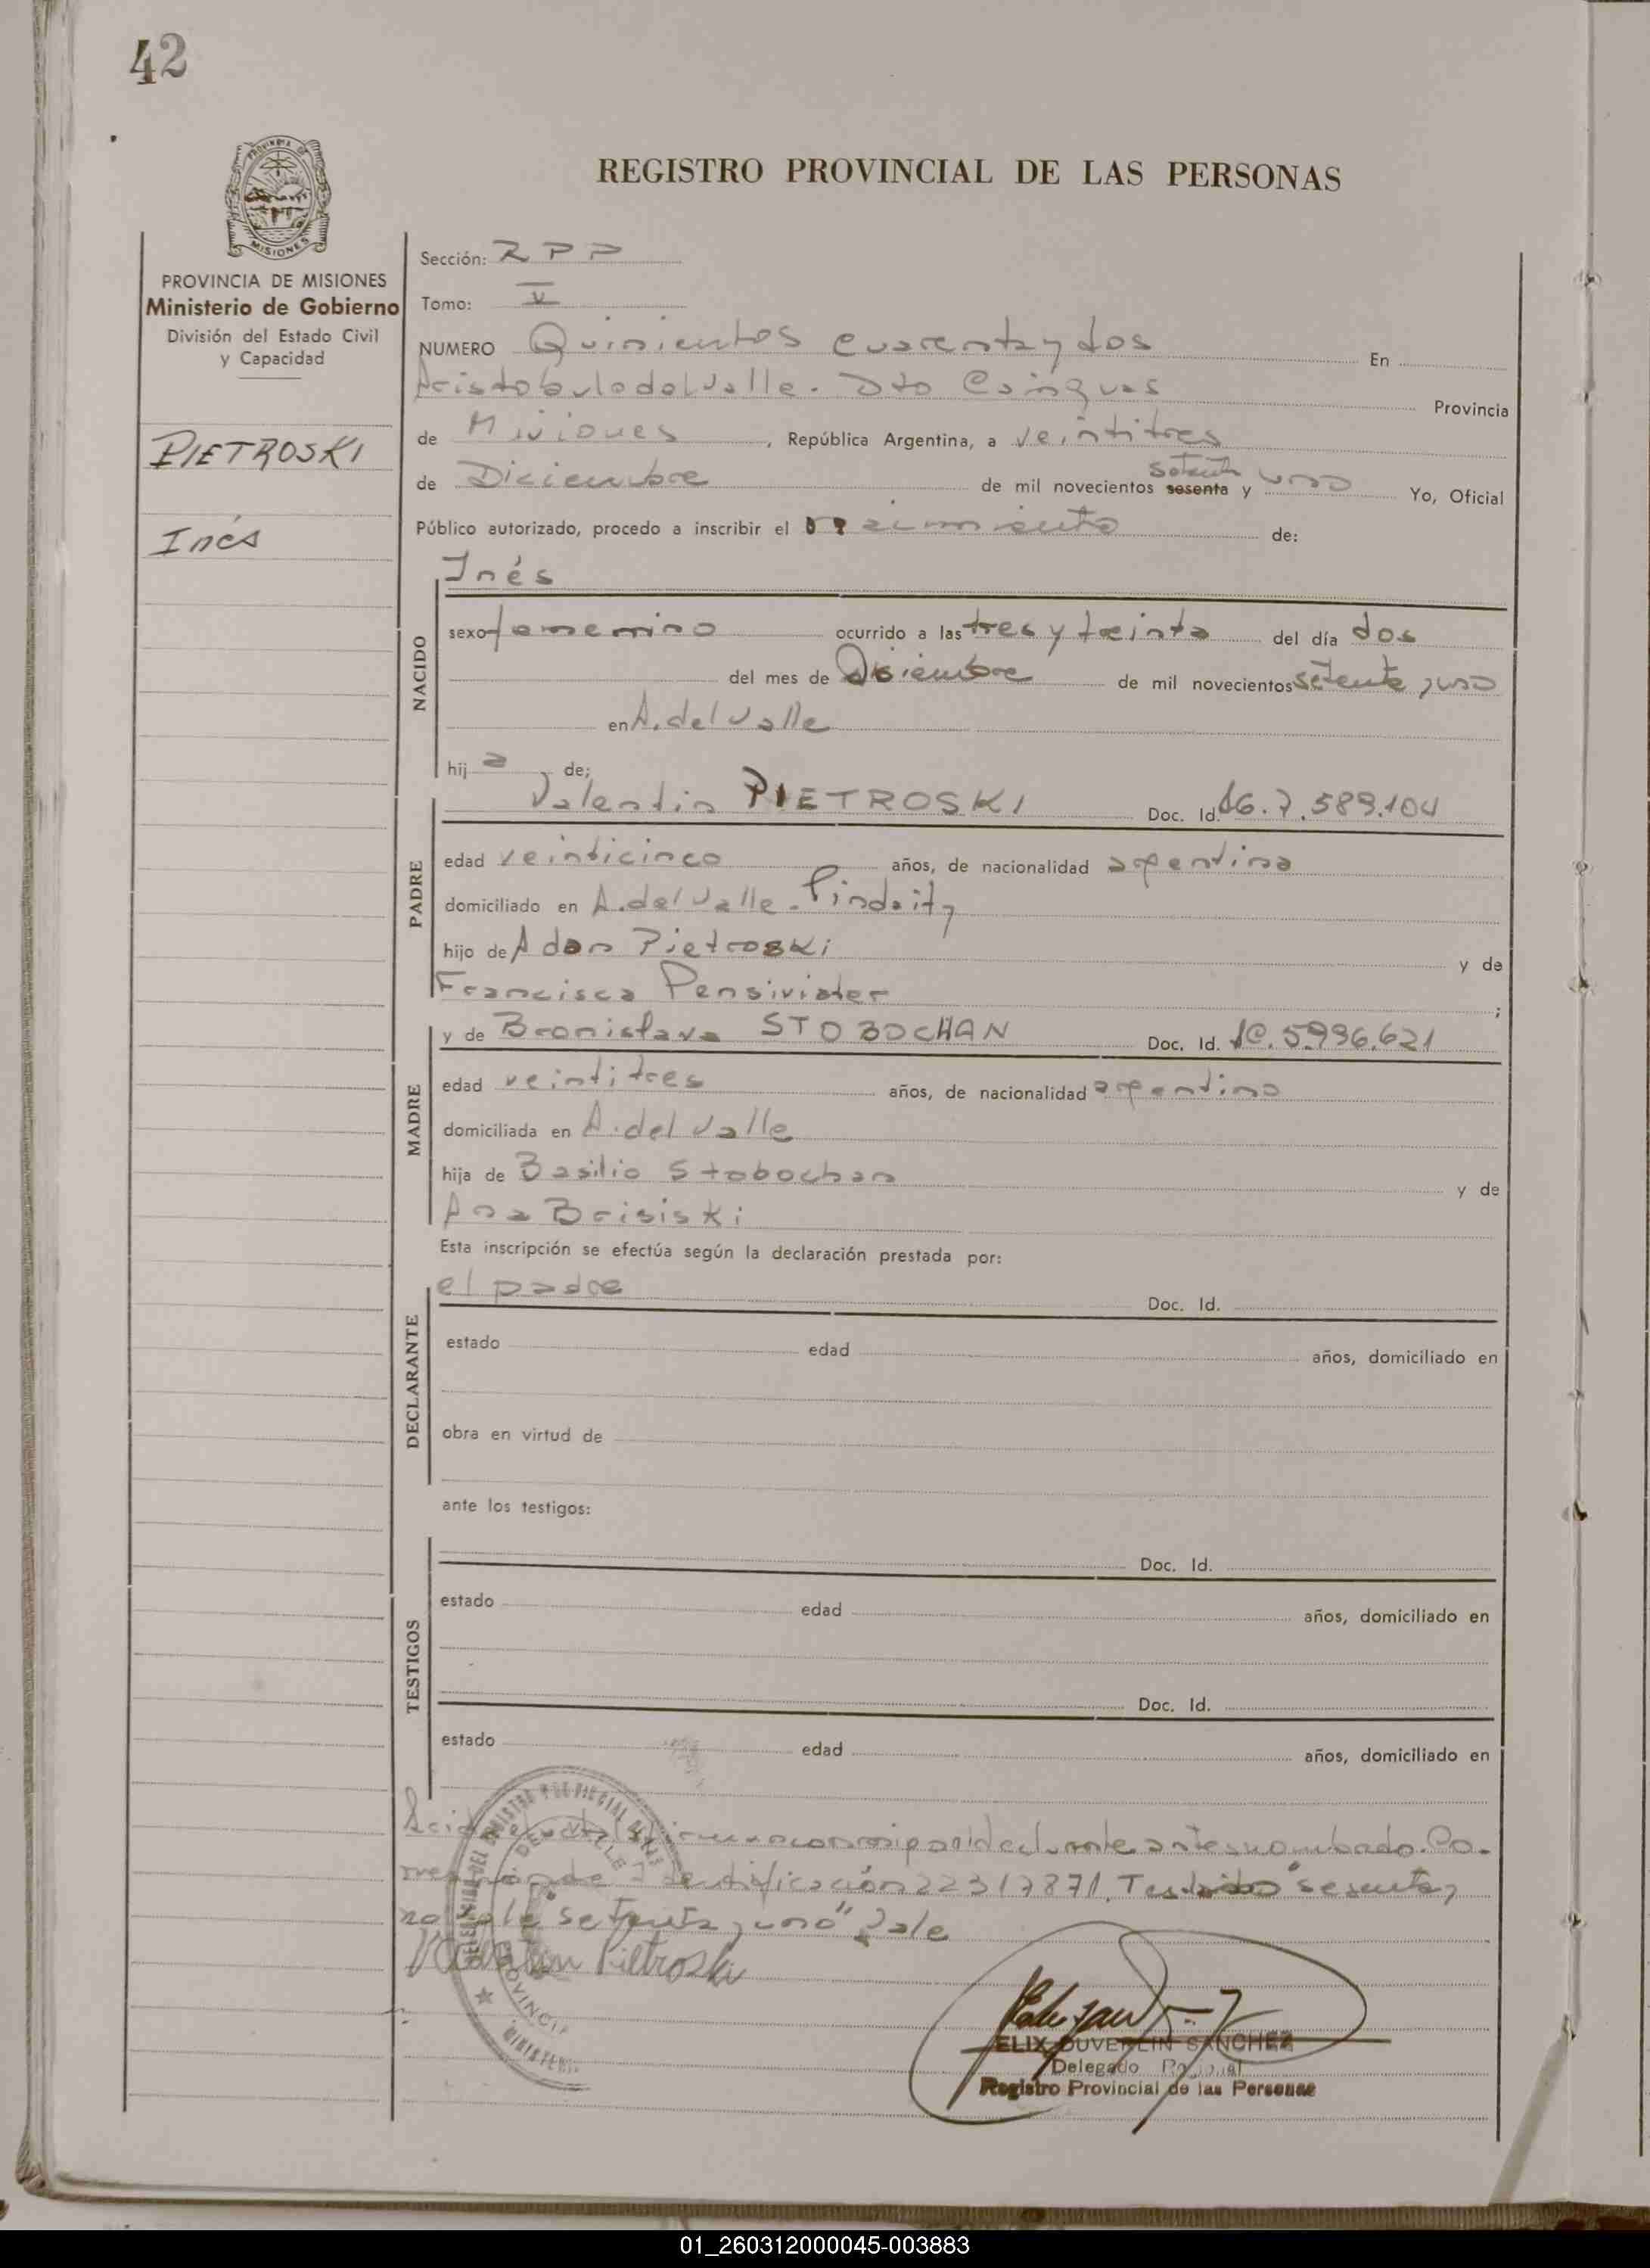 42
PROVINCIA DE
MISIONES
REGISTRO PROVINCIAL DE LAS PERSONAS
PROVINCIA DE MISIONES
Ministerio de Gobierno
División del Estado Civil
y Capacidad
PIETROSKI
Inés
Sección: RPP
Tomo: V
NUMERO Quinientos cuarenta y dos En
Aristobulo del Valle. Dto Cainguas Provincia
de Misiones, República Argentina, a veintitres
setenta
de Diciembre de mil novecientos sesenta y uno Yo, Oficial
Público autorizado, procedo a inscribir el nacimiento de:
Inés
NACIDO
sexo femenino ocurrido a las tres y treinta del día dos
del mes de Diciembre de mil novecientos setenta y uno
en A. del Valle
hij a de:
PADRE
Valentin PIETROSKI Doc. Id. 7.589.104
edad veinticinco años, de nacionalidad argentina
domiciliado en A. del Valle - Pindaity
hijo de Adan Pietroski y de
Francisca ;
MADRE
y de Bronislava STOBOCHAN Doc. Id. 5.996.621
edad veintitres años, de nacionalidad argentina
domiciliada en A. del Valle
hija de Basilio Stobochan y de
Ana Brisiski
Esta inscripción se efectúa según la declaración prestada por:
DECLARANTE
el padre Doc. Id.
estado edad años, domiciliado en
obra en virtud de
ante los testigos:
TESTIGOS
Doc. Id.
estado edad años, domiciliado en
Doc. Id.
estado edad años, domiciliado en
conmigo el declarante antes nombrado. Co-
de Identificación 22317871. Testado "sesenta y
no vale "setenta y uno" Vale
Valentin Pietroski
REGISTRO PROVINCIAL
DEL VALLE
PROVINCIA
MINISTERIO
FELIX DUVERLIN SANCHEZ
Delegado
Registro Provincial de las Personas
01_260312000045-003883